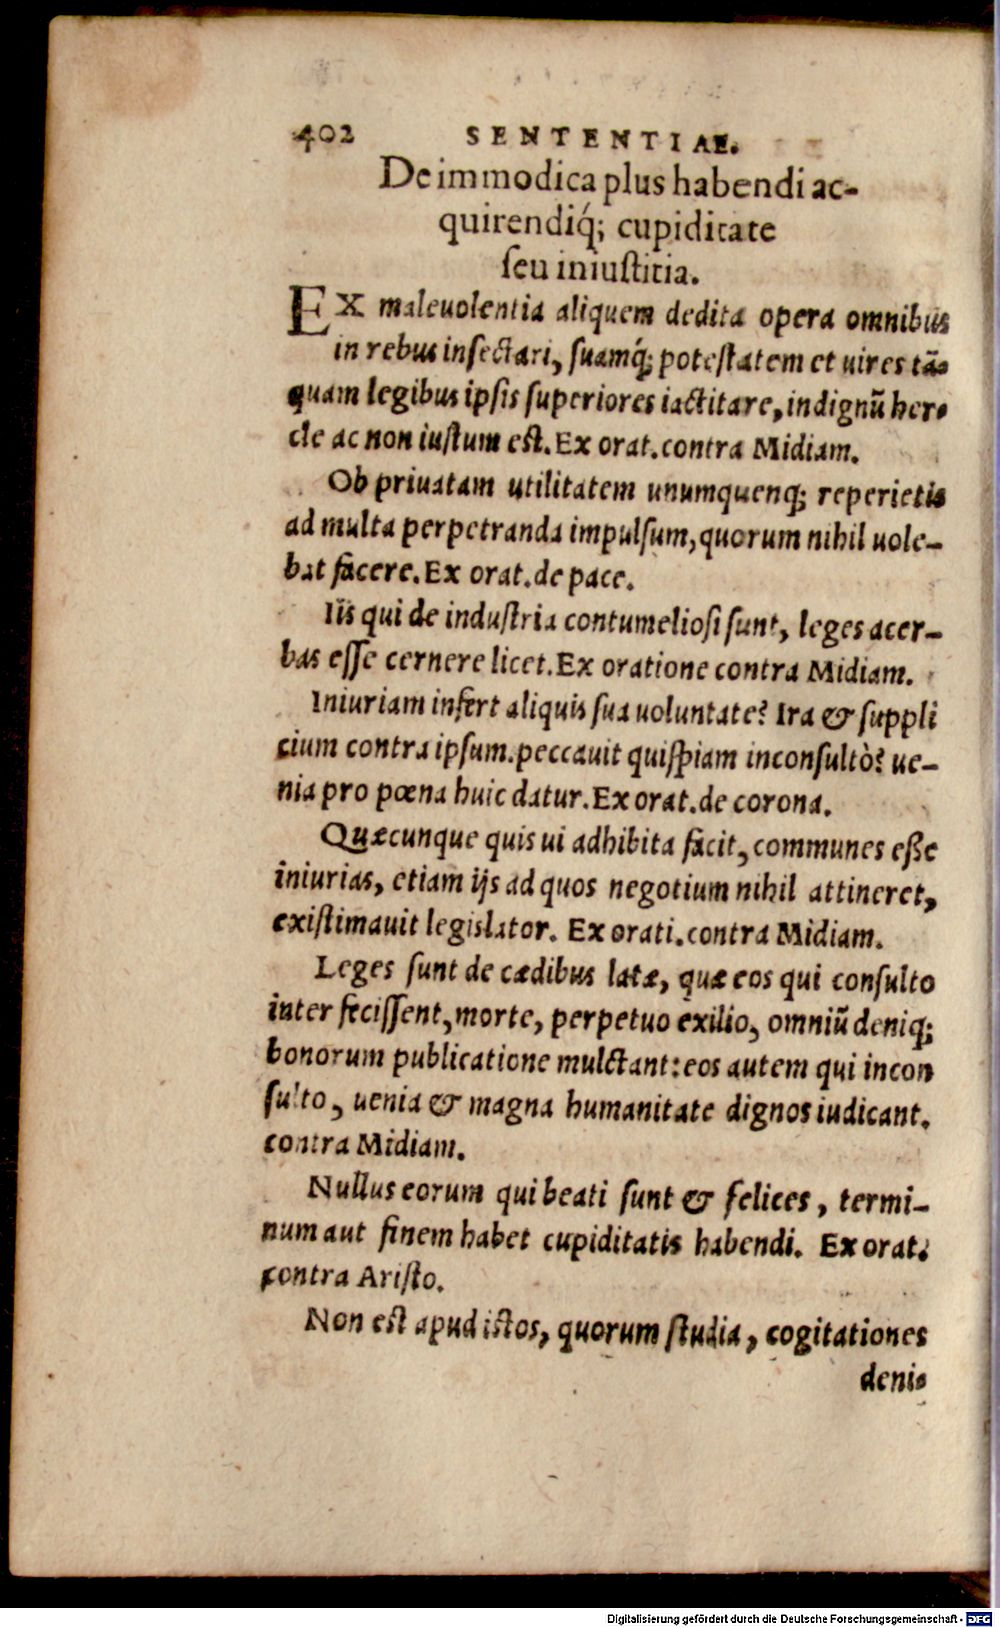 402 SENTENTIAE.
De immodica plus habendi ac-
quirendiq́; cupiditate
seu iniustitia.
EX maleuolentia aliquem dedita opera omnibus
in rebus insectari, suamq́; potestatem et uires tã-
quam legibus ipsis superiores iactitare, indignũ her-
cle ac non iustum est. Ex orat. contra Midiam.
Ob priuatam utilitatem unumquenq; reperietis
ad multa perpetranda impulsum, quorum nihil uole-
bat facere. Ex orat. de pace.
Iis qui de industria contumeliosi sunt, leges acer-
bas esse cernere licet. Ex oratione contra Midiam.
Iniuriam infert aliquis sua uoluntate? Ira & suppli
cium contra ipsum. peccauit quispiam inconsultò? ue-
nia pro pœna huic datur. Ex orat. de corona.
Quæcunque quis ui adhibita facit, communes eße
iniurias, etiam ijs ad quos negotium nihil attineret,
existimauit legislator. Ex orati. contra Midiam.
Leges sunt de cædibus latæ, quæ eos qui consulto
interfecissent, morte, perpetuo exilio, omniũ deniq;
bonorum publicatione mulctant: eos autem qui incon
sulto, uenia & magna humanitate dignos iudicant.
contra Midiam.
Nullus eorum qui beati sunt & felices, termi-
num aut finem habet cupiditatis habendi. Ex orat.
contra Aristo.
Non est apud istos, quorum studia, cogitationes
deni-
Digitalisierung gefördert durch die Deutsche Forschungsgemeinschaft - DFG